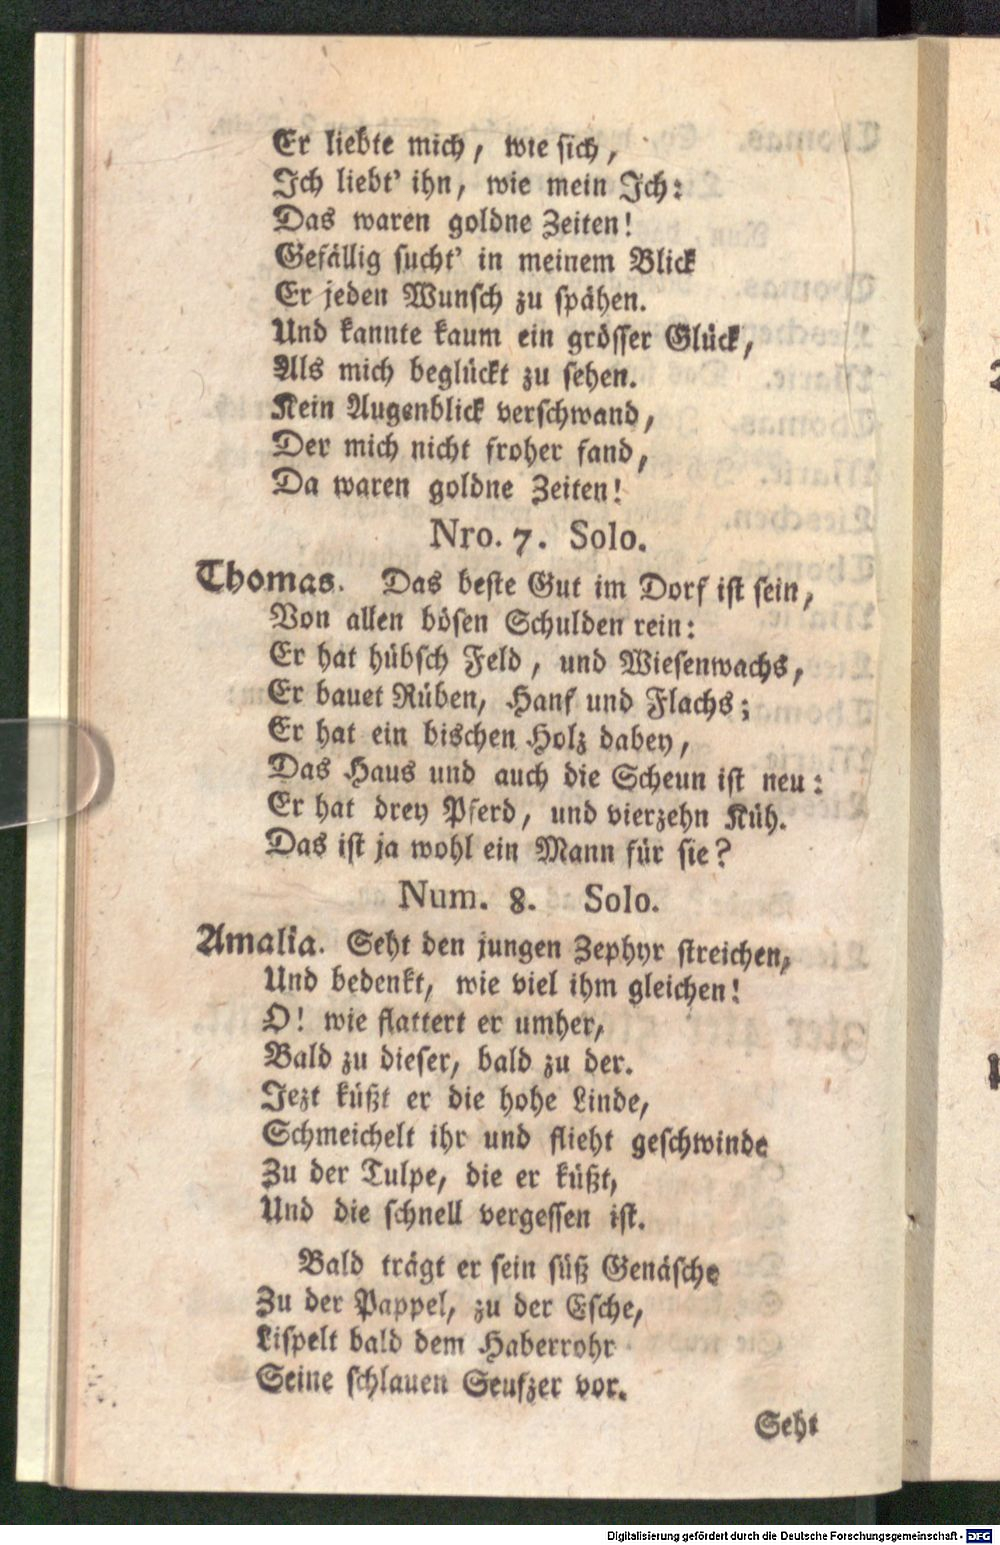 Er liebte mich, wie sich,
Ich liebt' ihn, wie mein Ich:
Das waren goldne Zeiten!
Gefällig sucht' in meinem Blick
Er jeden Wunsch zu spähen.
Und kannte kaum ein grösser Glück,
Als mich beglückt zu sehen.
Kein Augenblick verschwand,
Der mich nicht froher fand,
Da waren goldne Zeiten!
Nro. 7. Solo.
Thomas. Das beste Gut im Dorf ist sein,
Von allen bösen Schulden rein:
Er hat hübsch Feld, und Wiesenwachs,
Er bauet Rüben, Hanf und Flachs;
Er hat ein bischen Holz dabey,
Das Haus und auch die Scheun ist neu:
Er hat drey Pferd, und vierzehn Küh.
Das ist ja wohl ein Mann für sie?
Num. 8. Solo.
Amalia. Seht den jungen Zephyr streichen,
Und bedenkt, wie viel ihm gleichen!
O! wie flattert er umher,
Bald zu dieser, bald zu der.
Jezt küßt er die hohe Linde,
Schmeichelt ihr und flieht geschwinde
Zu der Tulpe, die er küßt,
Und die schnell vergessen ist.
Bald trägt er sein süß Genäsche
Zu der Pappel, zu der Esche,
Lispelt bald dem Haberrohr
Seine schlauen Seufzer vor.
Seht
Digitalisierung gefördert durch die Deutsche Forschungsgemeinschaft - DFG